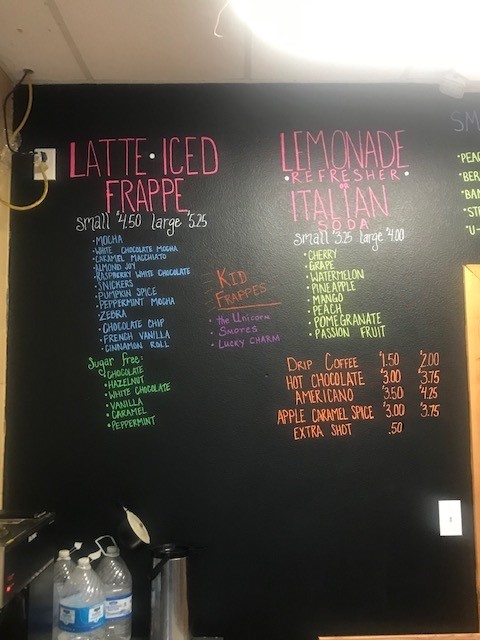 LATTE • ICED
FRAPPE
small $4.50 large $5.25
• MOCHA
• WHITE CHOCOLATE MOCHA
• CARAMEL MACCHIATO
• ALMOND JOY
• RASPBERRY WHITE CHOCOLATE
• SNICKERS
• PUMPKIN SPICE
• PEPPERMINT MOCHA
• ZEBRA
• CHOCOLATE CHIP
• FRENCH VANILLA
• CINNAMON ROLL
Sugar free:
• CHOCOLATE
• HAZELNUT
• WHITE CHOCOLATE
• VANILLA
• CARAMEL
• PEPPERMINT
KID
FRAPPES
• the Unicorn
• SMORES
• LUCKY CHARM
LEMONADE
• REFRESHER •
or
ITALIAN
SODA
small $3.25 large $4.00
• CHERRY
• GRAPE
• WATERMELON
• PINEAPPLE
• MANGO
• PEACH
• POMEGRANATE
• PASSION FRUIT
DRIP COFFEE $1.50 $2.00
HOT CHOCOLATE $3.00 $3.75
AMERICANO $3.50 $4.25
APPLE CARAMEL SPICE $3.00 $3.75
EXTRA SHOT .50
SM
• PEAC
• BER
• BAN
• ST
• U-